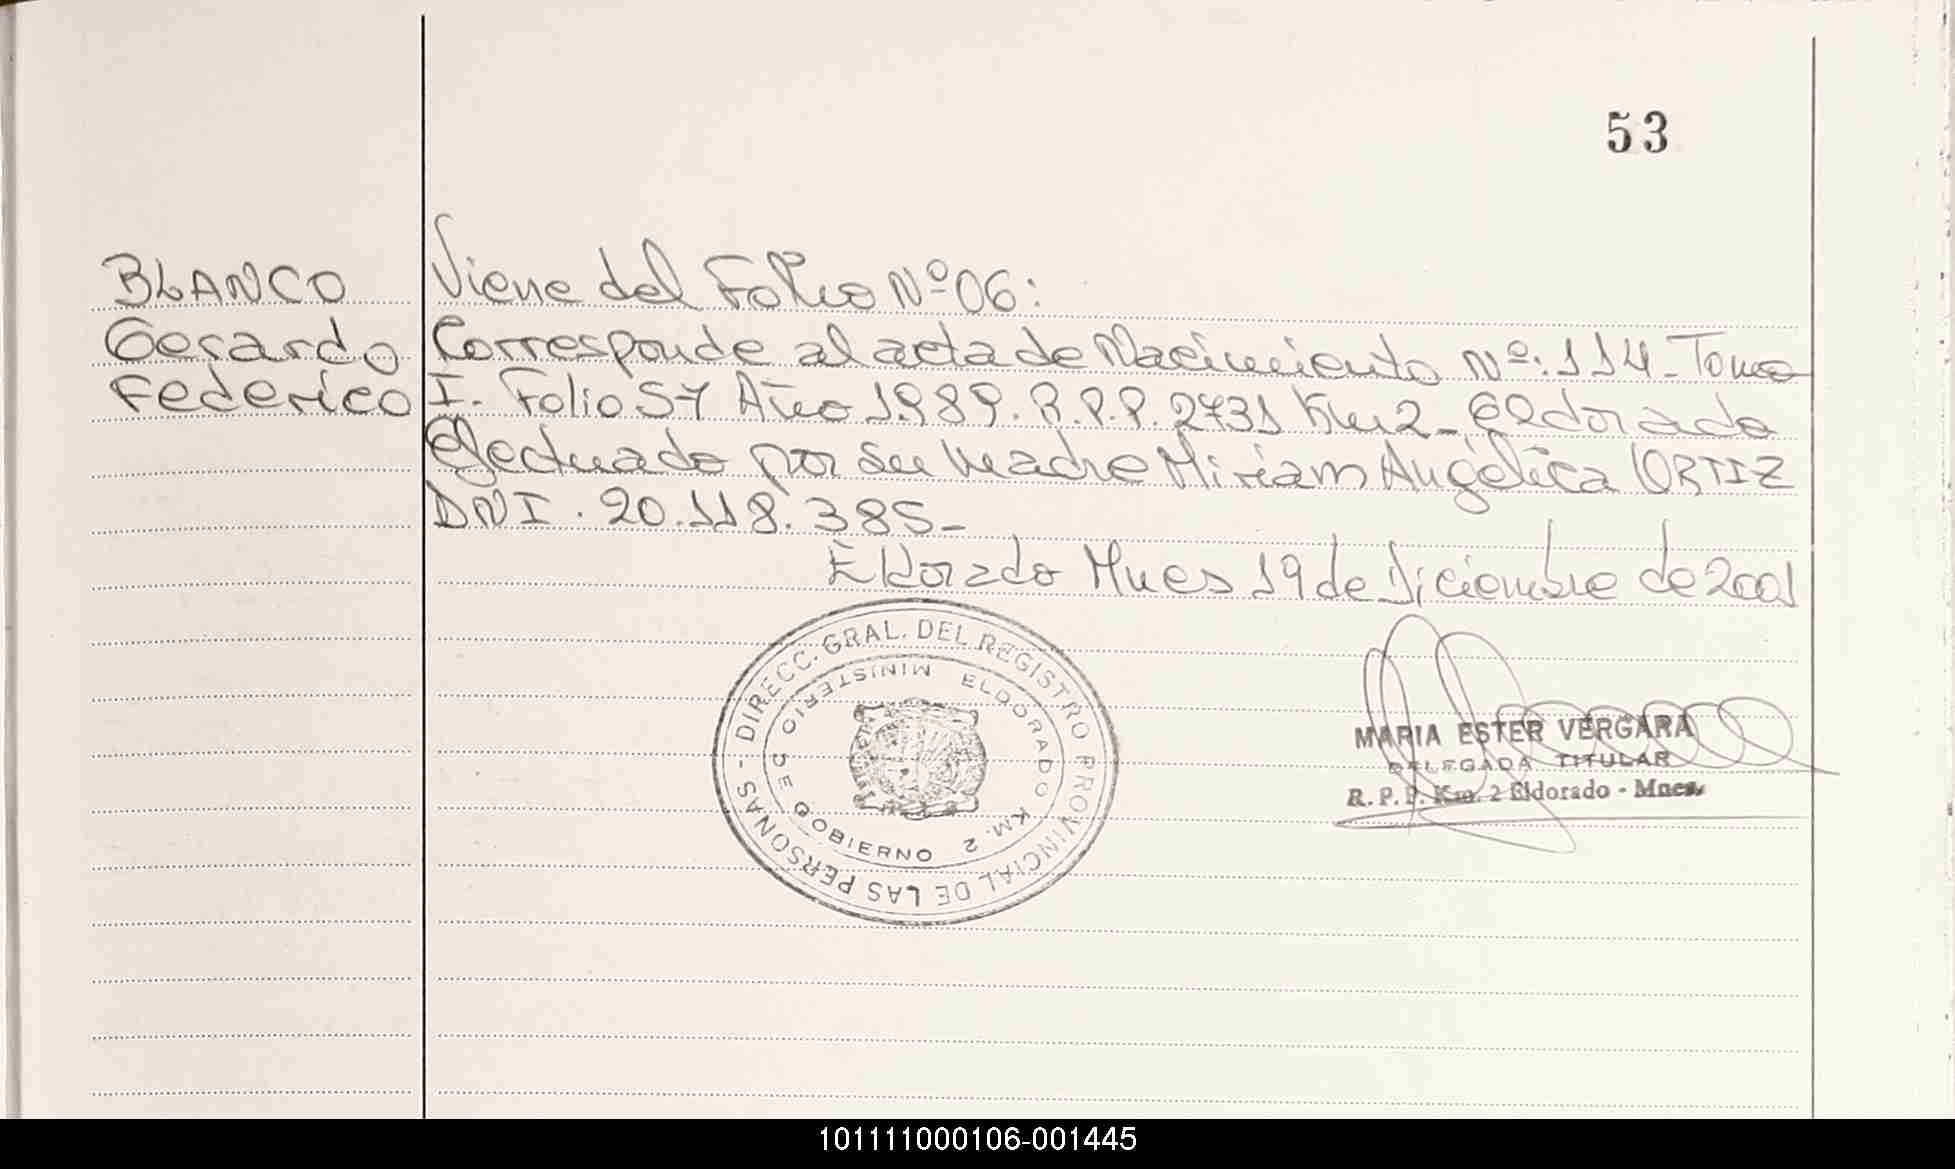 53
BLANCO
Gerardo
Federico
Viene del Folio Nº 06:
Corresponde al acta de Nacimiento Nº: 114 - Tomo
I. Folio 57 Año 1.989. R.P.P. 2731 Km 2 - Eldorado
Efectuado por su madre Miriam Angélica ORTIZ
DNI. 20.118.385 -
Eldorado Mnes 19 de Diciembre de 2001
DIRECC. GRAL. DEL REGISTRO PROVINCIAL DE LAS PERSONAS -
MINISTERIO DE GOBIERNO
ELDORADO KM. 2
MARIA ESTER VERGARA
DELEGADA TITULAR
R. P. P. Km. 2 Eldorado - Mnes.
101111000106-001445